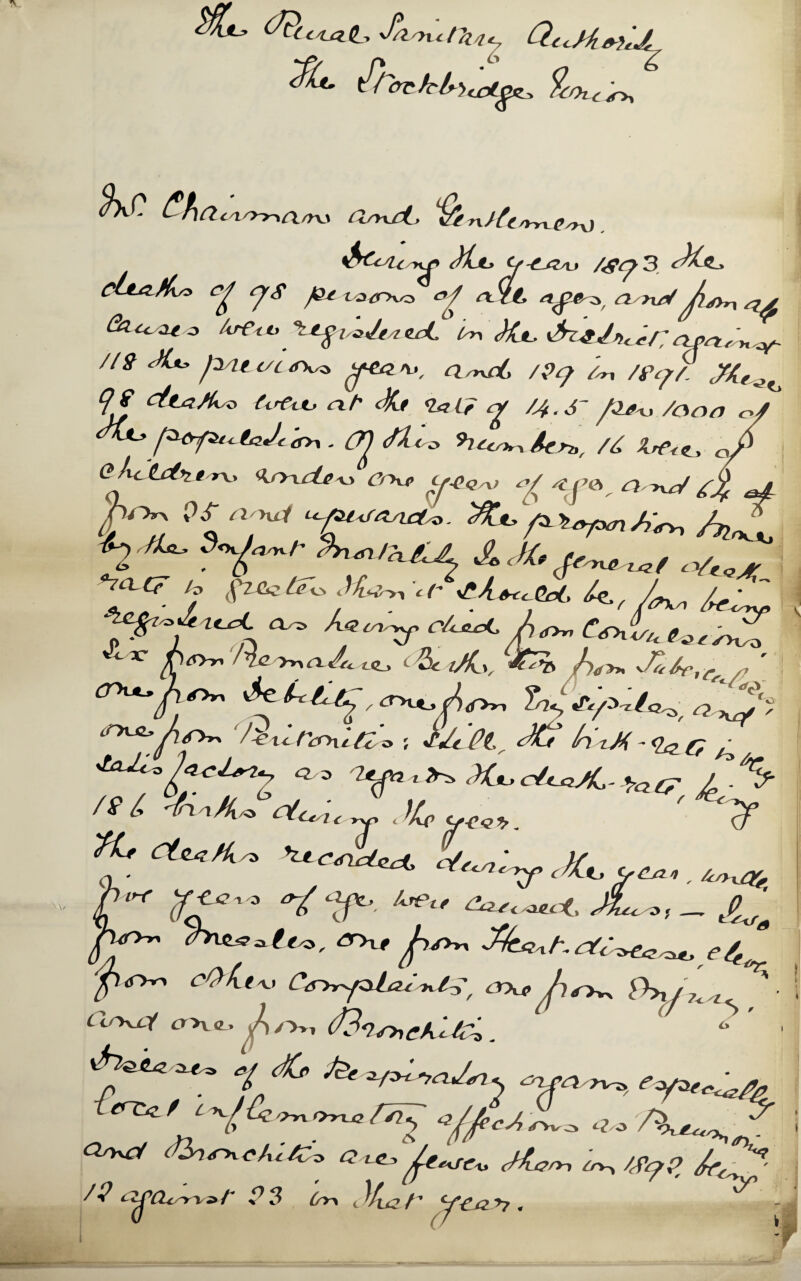 The Rural Sanitary Authority
The Stockbridge Union
Mr. Chairman and Gentlemen,
During the year 1893 the
deaths of 98 persons of all ages, and from all
causes were registered in the District, against
118 the previous year, and 129 in 1891. These
98 deaths were at the rate of 14.5 per 1000 of
the population. Of this number, 16 were of
Children under one year of age, and 64 of
from 65 and upwards. The proportion borne
by the Infant Mortality to the general death
rate is greater than it should be, four being
registered as having died from Convulsions
six from Premature Birth, two from Tubercular,
one from Debility, one from Dry Syphilas, and
one from Bronchitis; still, the birth-rate is
satisfactory as regards the death-rate, being
186 births during the year.
The deaths recorded during the year, under
five years of age, were caused thus; — Two
from Measles, one from Heart-disease, eleven
from Other Complaints, one from Injury,
and one from Bronchitis.
Diseases of the Respiratory organs, especially
local inflammatory affections as Pneumonia
and Bronchitis are fewer than in 1892, being
12 against 23 in that year.